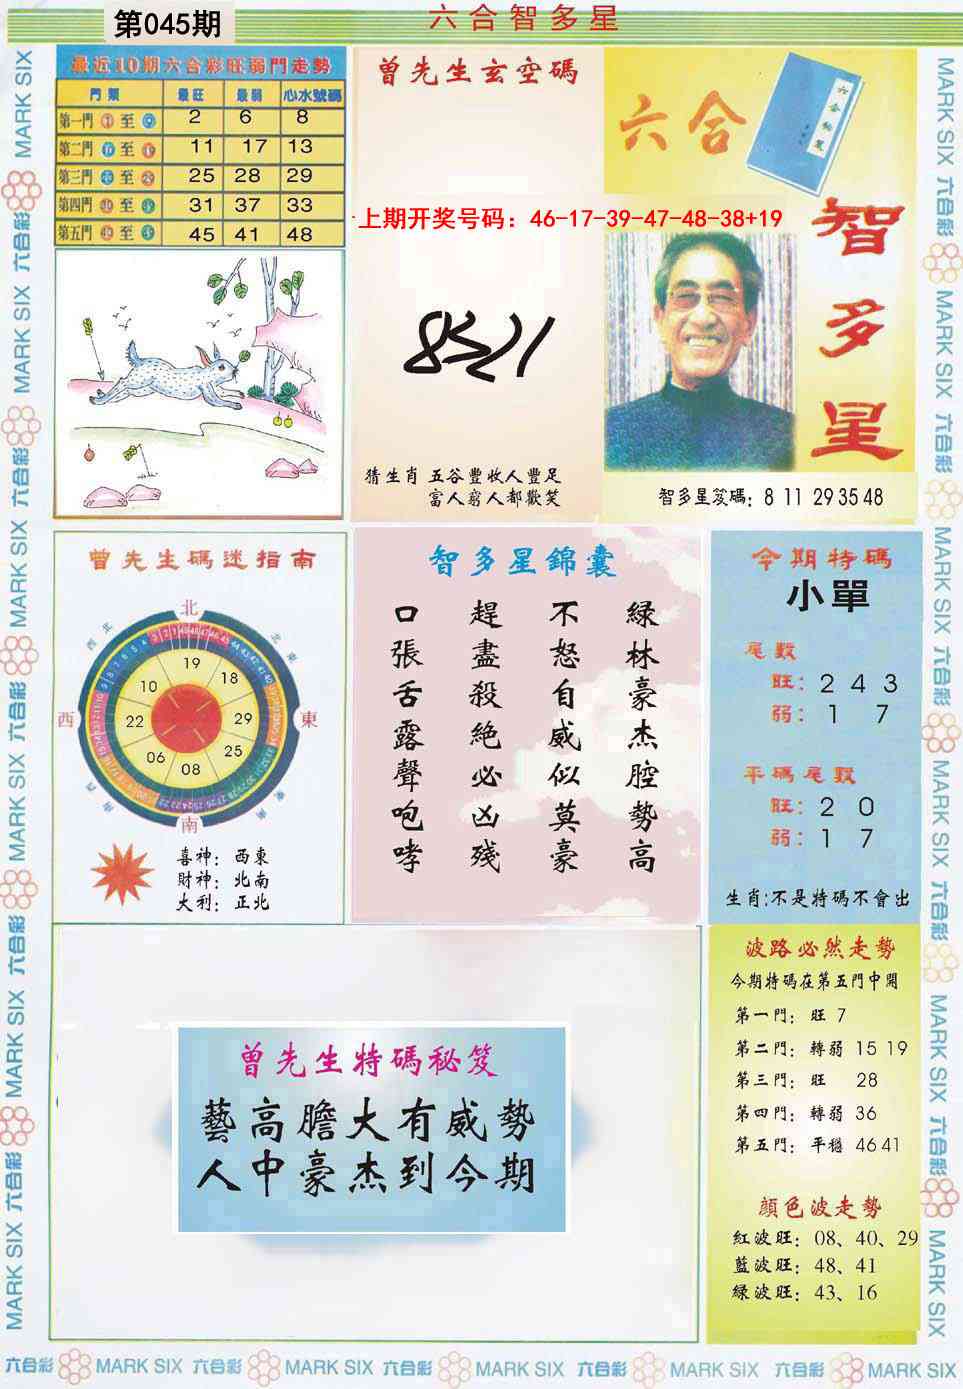 第045期
六合智多星
最近10期六合彩旺弱門走勢
門類 最旺 最弱 心水號碼
第一門 ① 至 2 6 8
第二門 至 11 17 13
第三門 至 25 28 29
第四門 至 31 37 33
第五門 至 45 41 48
曾先生玄空碼
六合
智多星
上期开奖号码：46-17-39-47-48-38+19
猜生肖 五谷豐收人豐足
富人窮人都歡笑
智多星笈碼：8 11 29 35 48
曾先生碼迷指南
北
西北
東北
西
東
西南
東南
南
19
18
29
25
08
06
22
10
喜神：西東
財神：北南
大利：正北
智多星錦囊
綠林豪杰腔勢高
不怒自威似莫豪
趕盡殺絕必凶殘
口張舌露聲咆哮
今期特碼
小單
尾數
旺：2 4 3
弱：1 7
平碼尾數
旺：2 0
弱：1 7
生肖:不是特碼不會出
曾先生特碼秘笈
藝高膽大有威勢
人中豪杰到今期
波路必然走勢
今期特碼在第五門中開
第一門：旺 7
第二門：轉弱 15 19
第三門：旺 28
第四門：轉弱 36
第五門：平穩 46 41
顔色波走勢
紅波旺：08、40、29
藍波旺：48、41
綠波旺：43、16
MARK SIX 六合彩 MARK SIX 六合彩 MARK SIX 六合彩 MARK SIX 六合彩 MARK SIX 六合彩 MARK SIX
MARK SIX 六合彩 MARK SIX 六合彩 MARK SIX 六合彩 MARK SIX 六合彩 MARK SIX 六合彩 MARK SIX
六合彩 MARK SIX 六合彩 MARK SIX 六合彩 MARK SIX 六合彩 MARK SIX 六合彩 MARK SIX